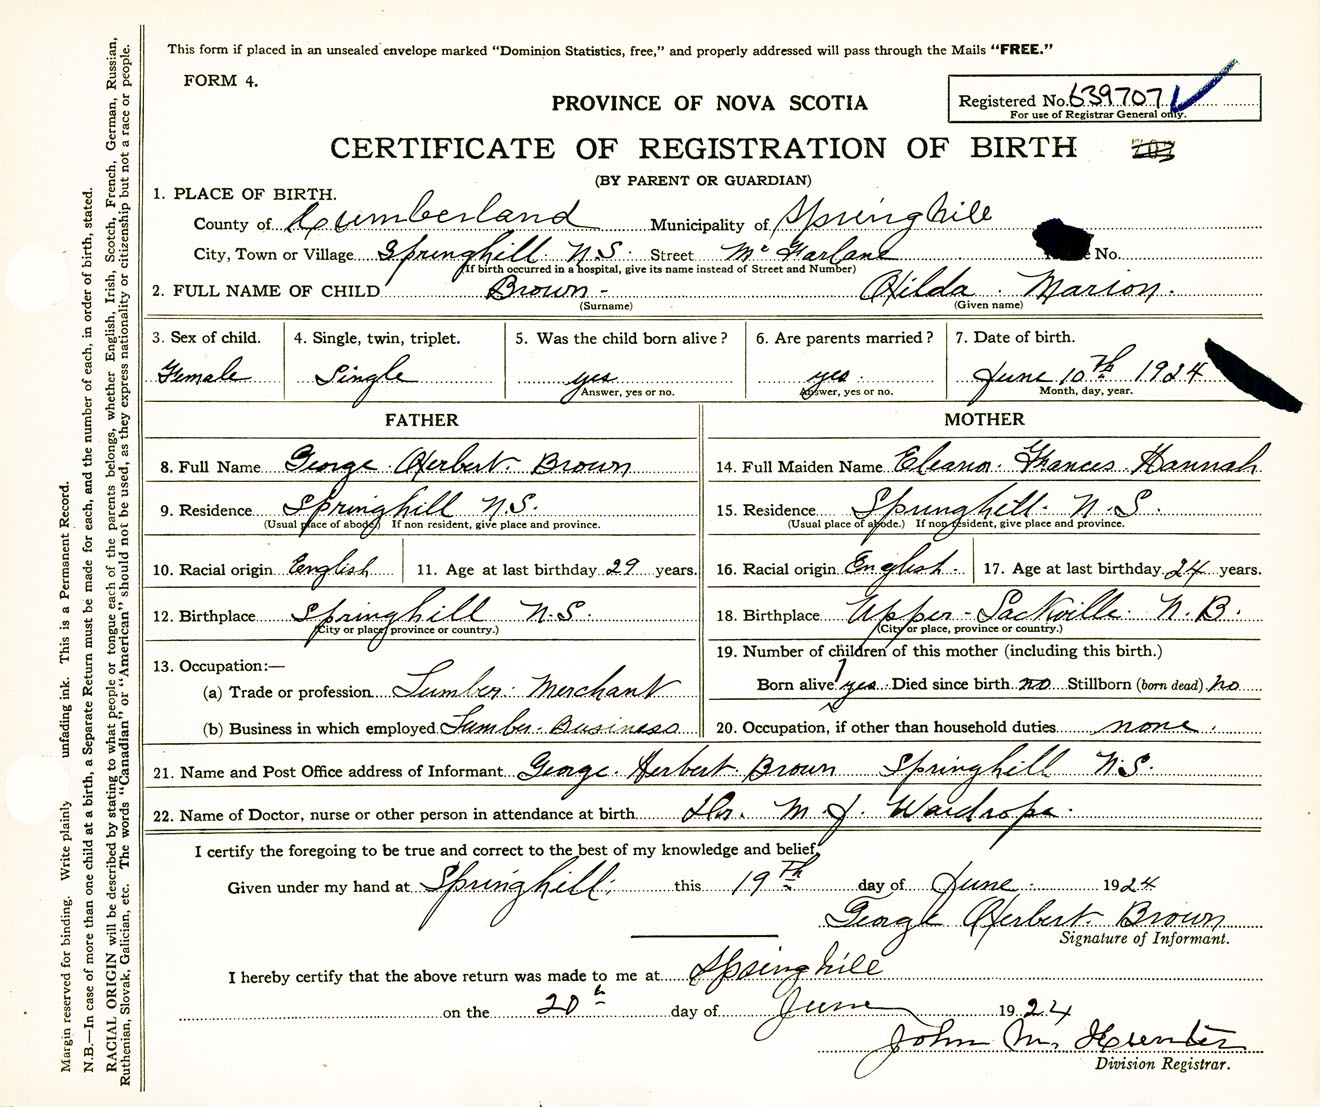 This form if placed in an unsealed envelope marked "Dominion Statistics, free," and properly addressed will pass through the Mails "FREE."
FORM 4.
Registered No. 639707
For use of Registrar General only.
PROVINCE OF NOVA SCOTIA
CERTIFICATE OF REGISTRATION OF BIRTH
(BY PARENT OR GUARDIAN)
1. PLACE OF BIRTH.
County of Cumberland Municipality of Springhill
City, Town or Village Springhill N.S. Street McFarlane No.
(If birth occurred in a hospital, give its name instead of Street and Number)
2. FULL NAME OF CHILD Brown - Hilda Marion.
(Surname) (Given name)
3. Sex of child. 4. Single, twin, triplet. 5. Was the child born alive? 6. Are parents married? 7. Date of birth.
Female Single yes yes. June 10th 1924
Answer, yes or no. Answer, yes or no. Month, day, year.
FATHER
8. Full Name George Herbert Brown
9. Residence Springhill N.S.
(Usual place of abode) If non resident, give place and province.
10. Racial origin English 11. Age at last birthday 29 years.
12. Birthplace Springhill N.S.
(City or place, province or country.)
13. Occupation:—
(a) Trade or profession Lumber Merchant
(b) Business in which employed Lumber Business
MOTHER
14. Full Maiden Name Eleanor Frances Hannah
15. Residence Springhill N.S.
(Usual place of abode.) If non resident, give place and province.
16. Racial origin English. 17. Age at last birthday 24 years.
18. Birthplace Upper-Sackville N.B.
(City or place, province or country.)
19. Number of children of this mother (including this birth.)
1
Born alive yes Died since birth no Stillborn (born dead) no
20. Occupation, if other than household duties none.
21. Name and Post Office address of Informant George Herbert Brown Springhill N.S.
22. Name of Doctor, nurse or other person in attendance at birth Dr. M J. Wardrope.
I certify the foregoing to be true and correct to the best of my knowledge and belief,
Given under my hand at Springhill, this 19th day of June 1924
George Herbert Brown
Signature of Informant.
I hereby certify that the above return was made to me at Springhill
on the 20th day of June 1924
John M. Hunter
Division Registrar.
Margin reserved for binding. Write plainly unfading ink. This is a Permanent Record.
N.B.—In case of more than one child at a birth, a Separate Return must be made for each, and the number of each, in order of birth, stated.
RACIAL ORIGIN will be described by stating to what people or tongue each of the parents belongs, whether English, Irish, Scotch, French, German, Russian,
Ruthenian, Slovak, Galician, etc. The words "Canadian" or "American" should not be used, as they express nationality or citizenship but not a race or people.